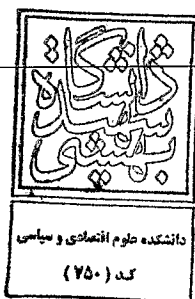 دانشگاه
شهید
بهشتی
دانشکده علوم اقتصادی و سیاسی
کد (۷۵۰)